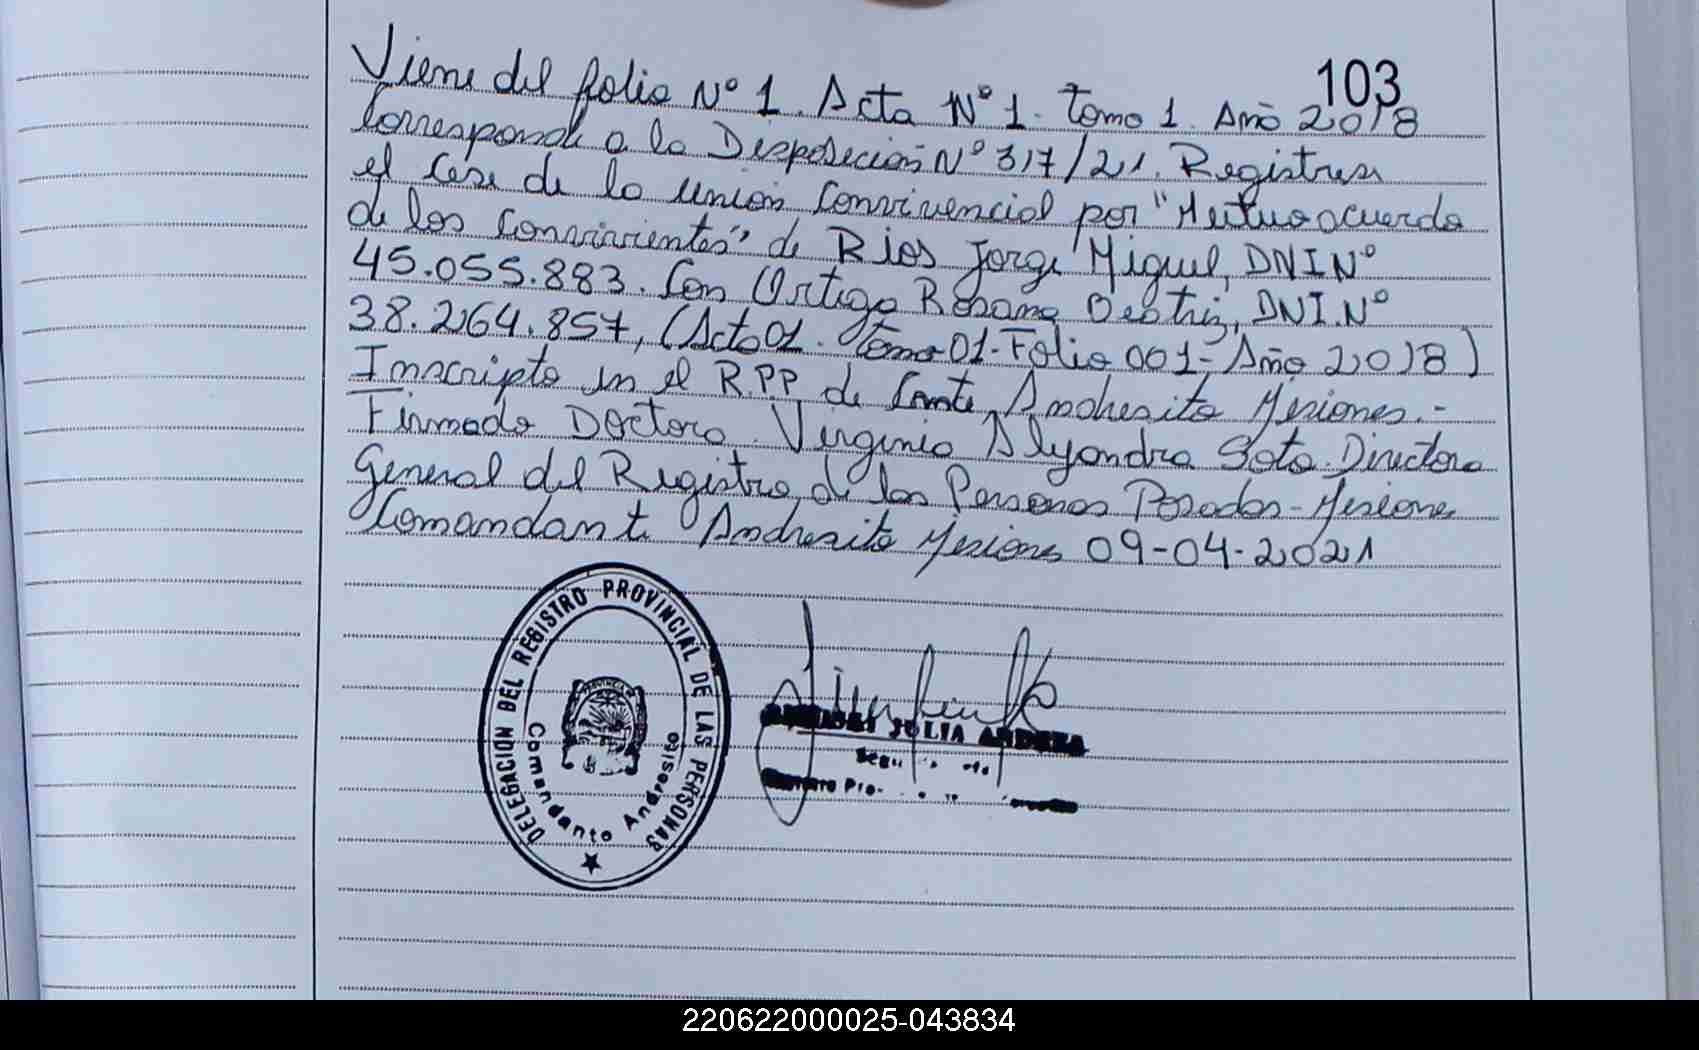 103
Viene del folio Nº 1. Acta Nº 1. Tomo 1. Año 2018
Corresponde a la Disposición Nº 317/21. Registrese
el Cese de la union Convivencial por "Mutuo acuerdo
de los Convivientes" de Rios Jorge Miguel, DNI Nº
45.055.883. Con Ortega Rosana Beatriz, DNI. Nº
38.264.857, (Acta 01. Tomo 01-Folio 001-Año 2018)
Inscripto en el R.P.P de Cmte Andresito Misiones.-
Firmado Doctora. Virginia Alejandra Soto. Directora
General del Registro de las Personas Posadas-Misiones
Comandante Andresito Misiones 09-04-2021
DELEGACION DEL REGISTRO PROVINCIAL DE LAS PERSONAS
Comandante Andresito
PROVINCIA DE
JULIA
220622000025-043834